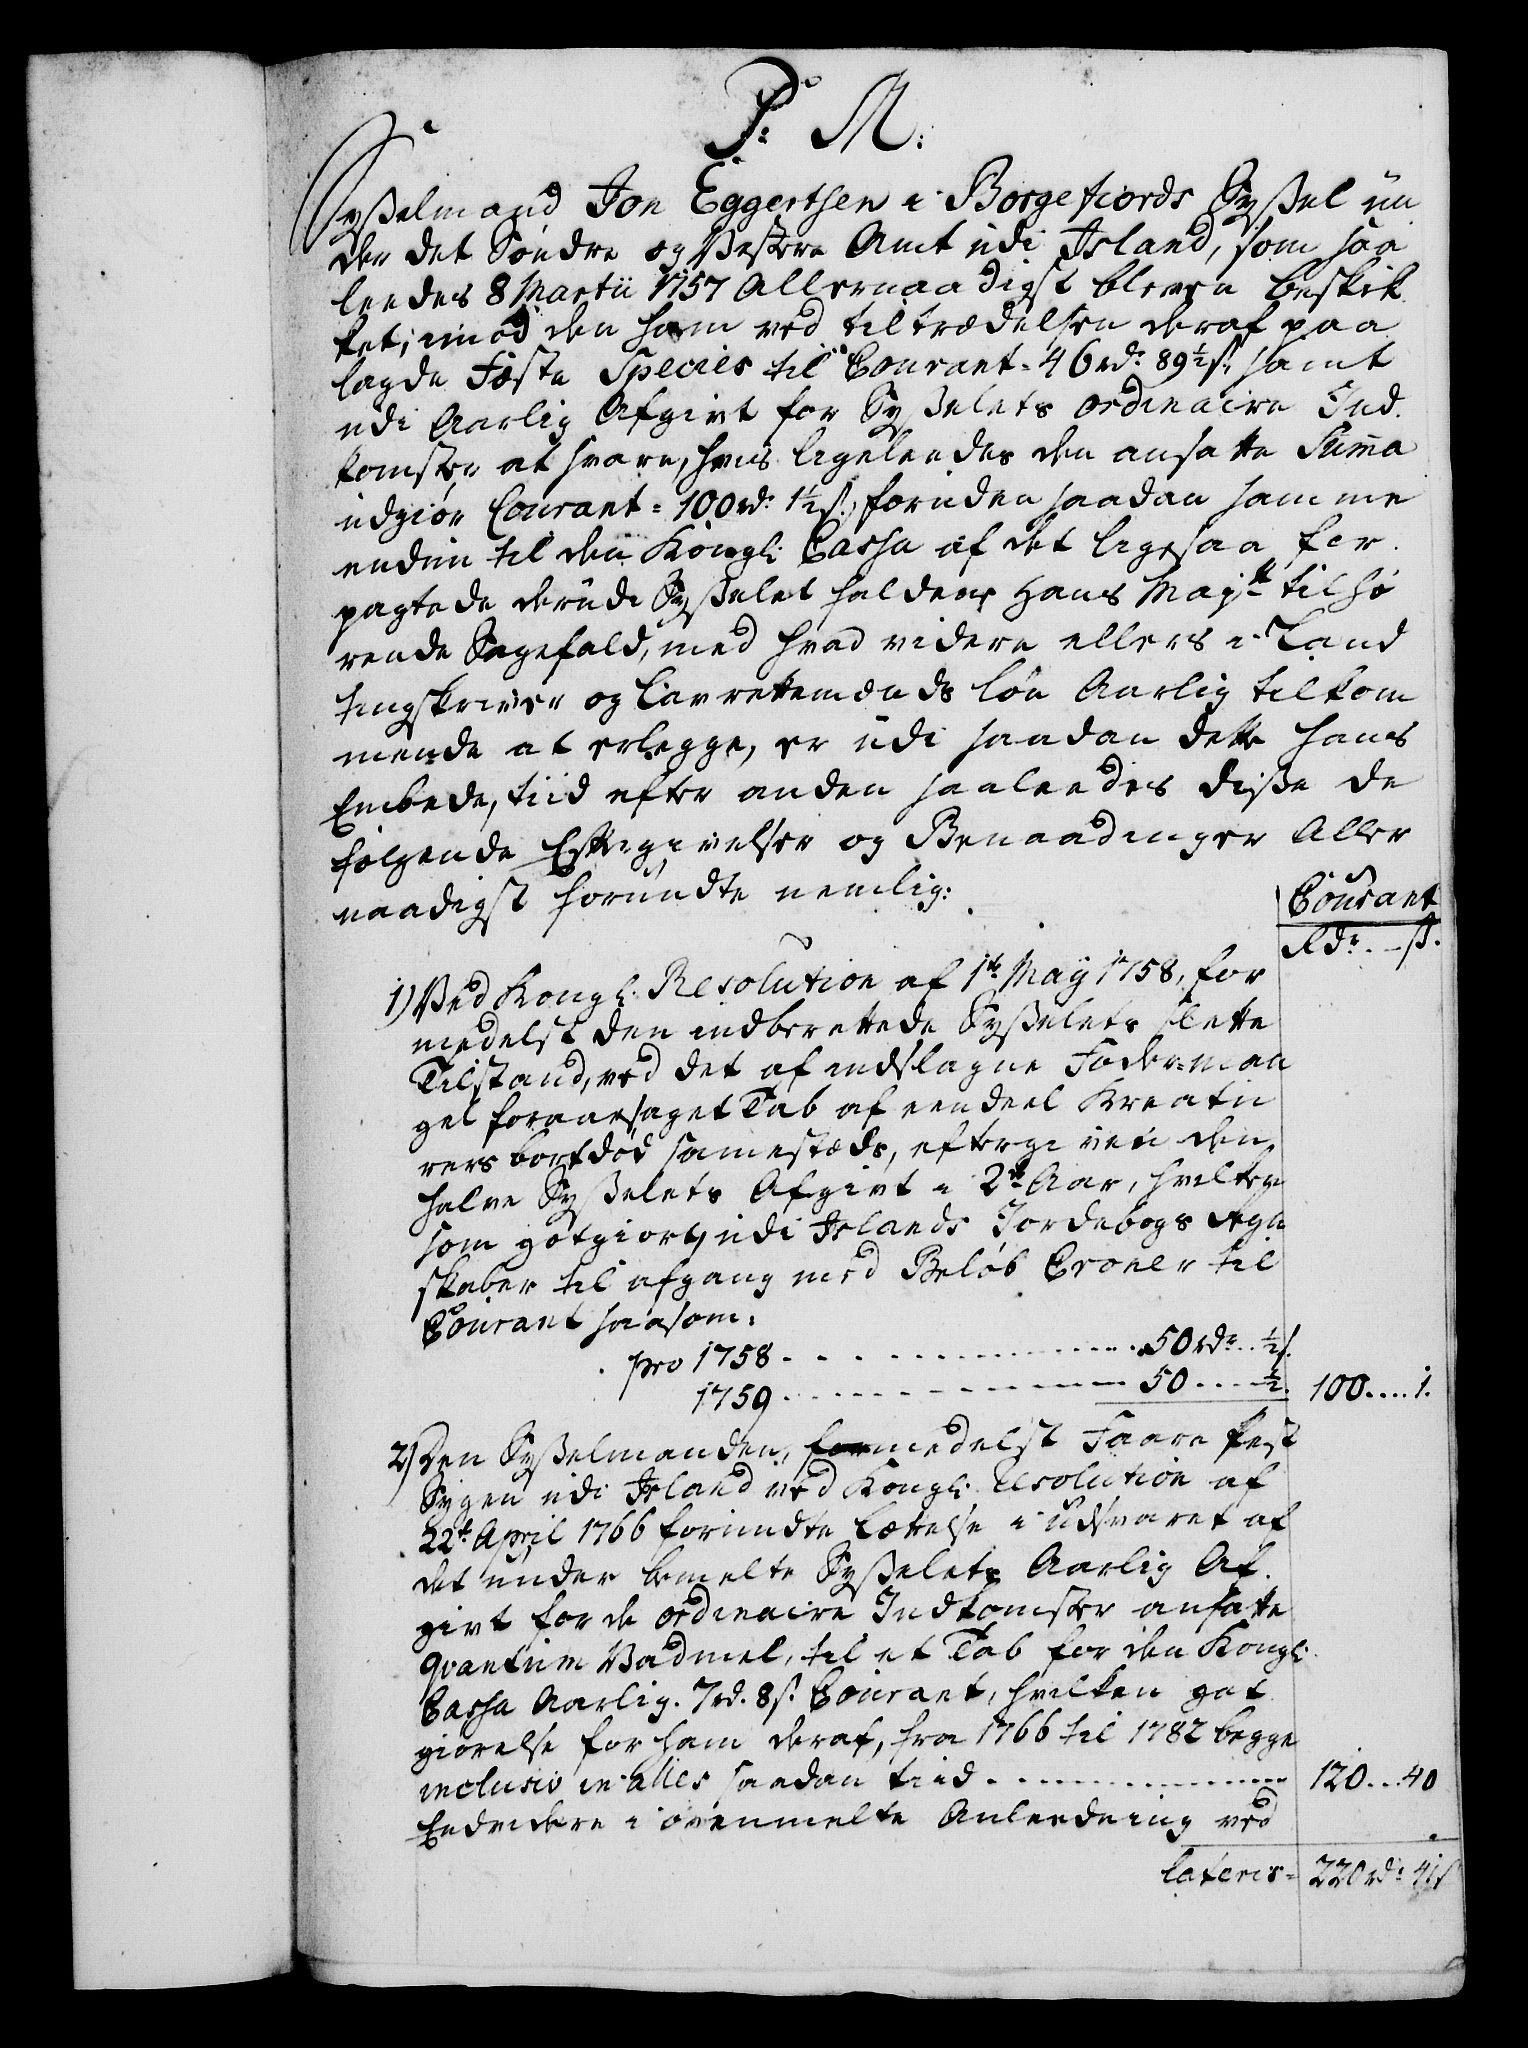 P: M:
Sysselmand Jon Eggertsen i Borgefiords Syssel un
der det Söndre og Vestere Amt udi Island, som saa
leedes 8 Martii 1757 Allernaadigst bleven beskik
ket, imod den ham ved tiltrædelsen deraf paa
lagde Fæste Species til Courant = 46 rdr. 89½ s. samt
udi Aarlig Afgivt for Sysselets ordinaire Ind
komster at svare, hvis ligeleedes den ansatte Summa
udgiör Courant = 100 rdr. 1½ s., foruden saadan samme
endnu til den Kongl: Cassa af det ligesaa for
pagtede derudi Sysselet faldene Hans Mayts. tilhö
rende Sagefald, med hvad videre ellers i Land
tingskriver og Lavrettemænds lön Aarlig tilkom
mende at erlegge, er udi saadan dette hans
Embede, tiid efter anden saaleedes disse de
fölgende Eftergivelser og Benaadinger Aller
naadigst forundte nemlig:
Courant
Rdr. - s.
1) Ved Kongl: Resolution af 1te. May 1758, for
medelst den indberettede Sysselets slette
Tilstand, ved det af indslagne Foder-man
gel foraarsaget Tab af eendeel Kreatu
rers bortdöd samestæds, eftergiven den
halve Sysselets Afgivt i 2de. Aar, hvilken
som gotgiort, udi Islands Jordebogs Regn
skaber til afgang med Belöb Croner til
Courant saasom:
pro 1758 . . . . . . . . . 50 rdr. . ½ s.
1759 . . . . . . . . . 50 . . . . ½. 100 . . . . 1.
2) Den Sysselmanden, formedelst Faare Pest
Sygen udi Island ved Kongl: Resolution af
22de. April 1766 forundte Lættelse i Udsvaret af
det under bemelte Sysselets Aarlig Af
givt for de ordinaire Indkomster ansatte
Qvantum Vadmel, til et Tab for den Kongl:
Cassa Aarlig. 7 rd. 8 s. Courant, hvilken got
giörelse for ham deraf, fra 1766 til 1782 begge
inclusiv in alles saadan tiid . . . . . . . . . 120 . . . 40
Endvidere i ovenmelte Anleedning ved
Lateris = 220 rdr. 41 s